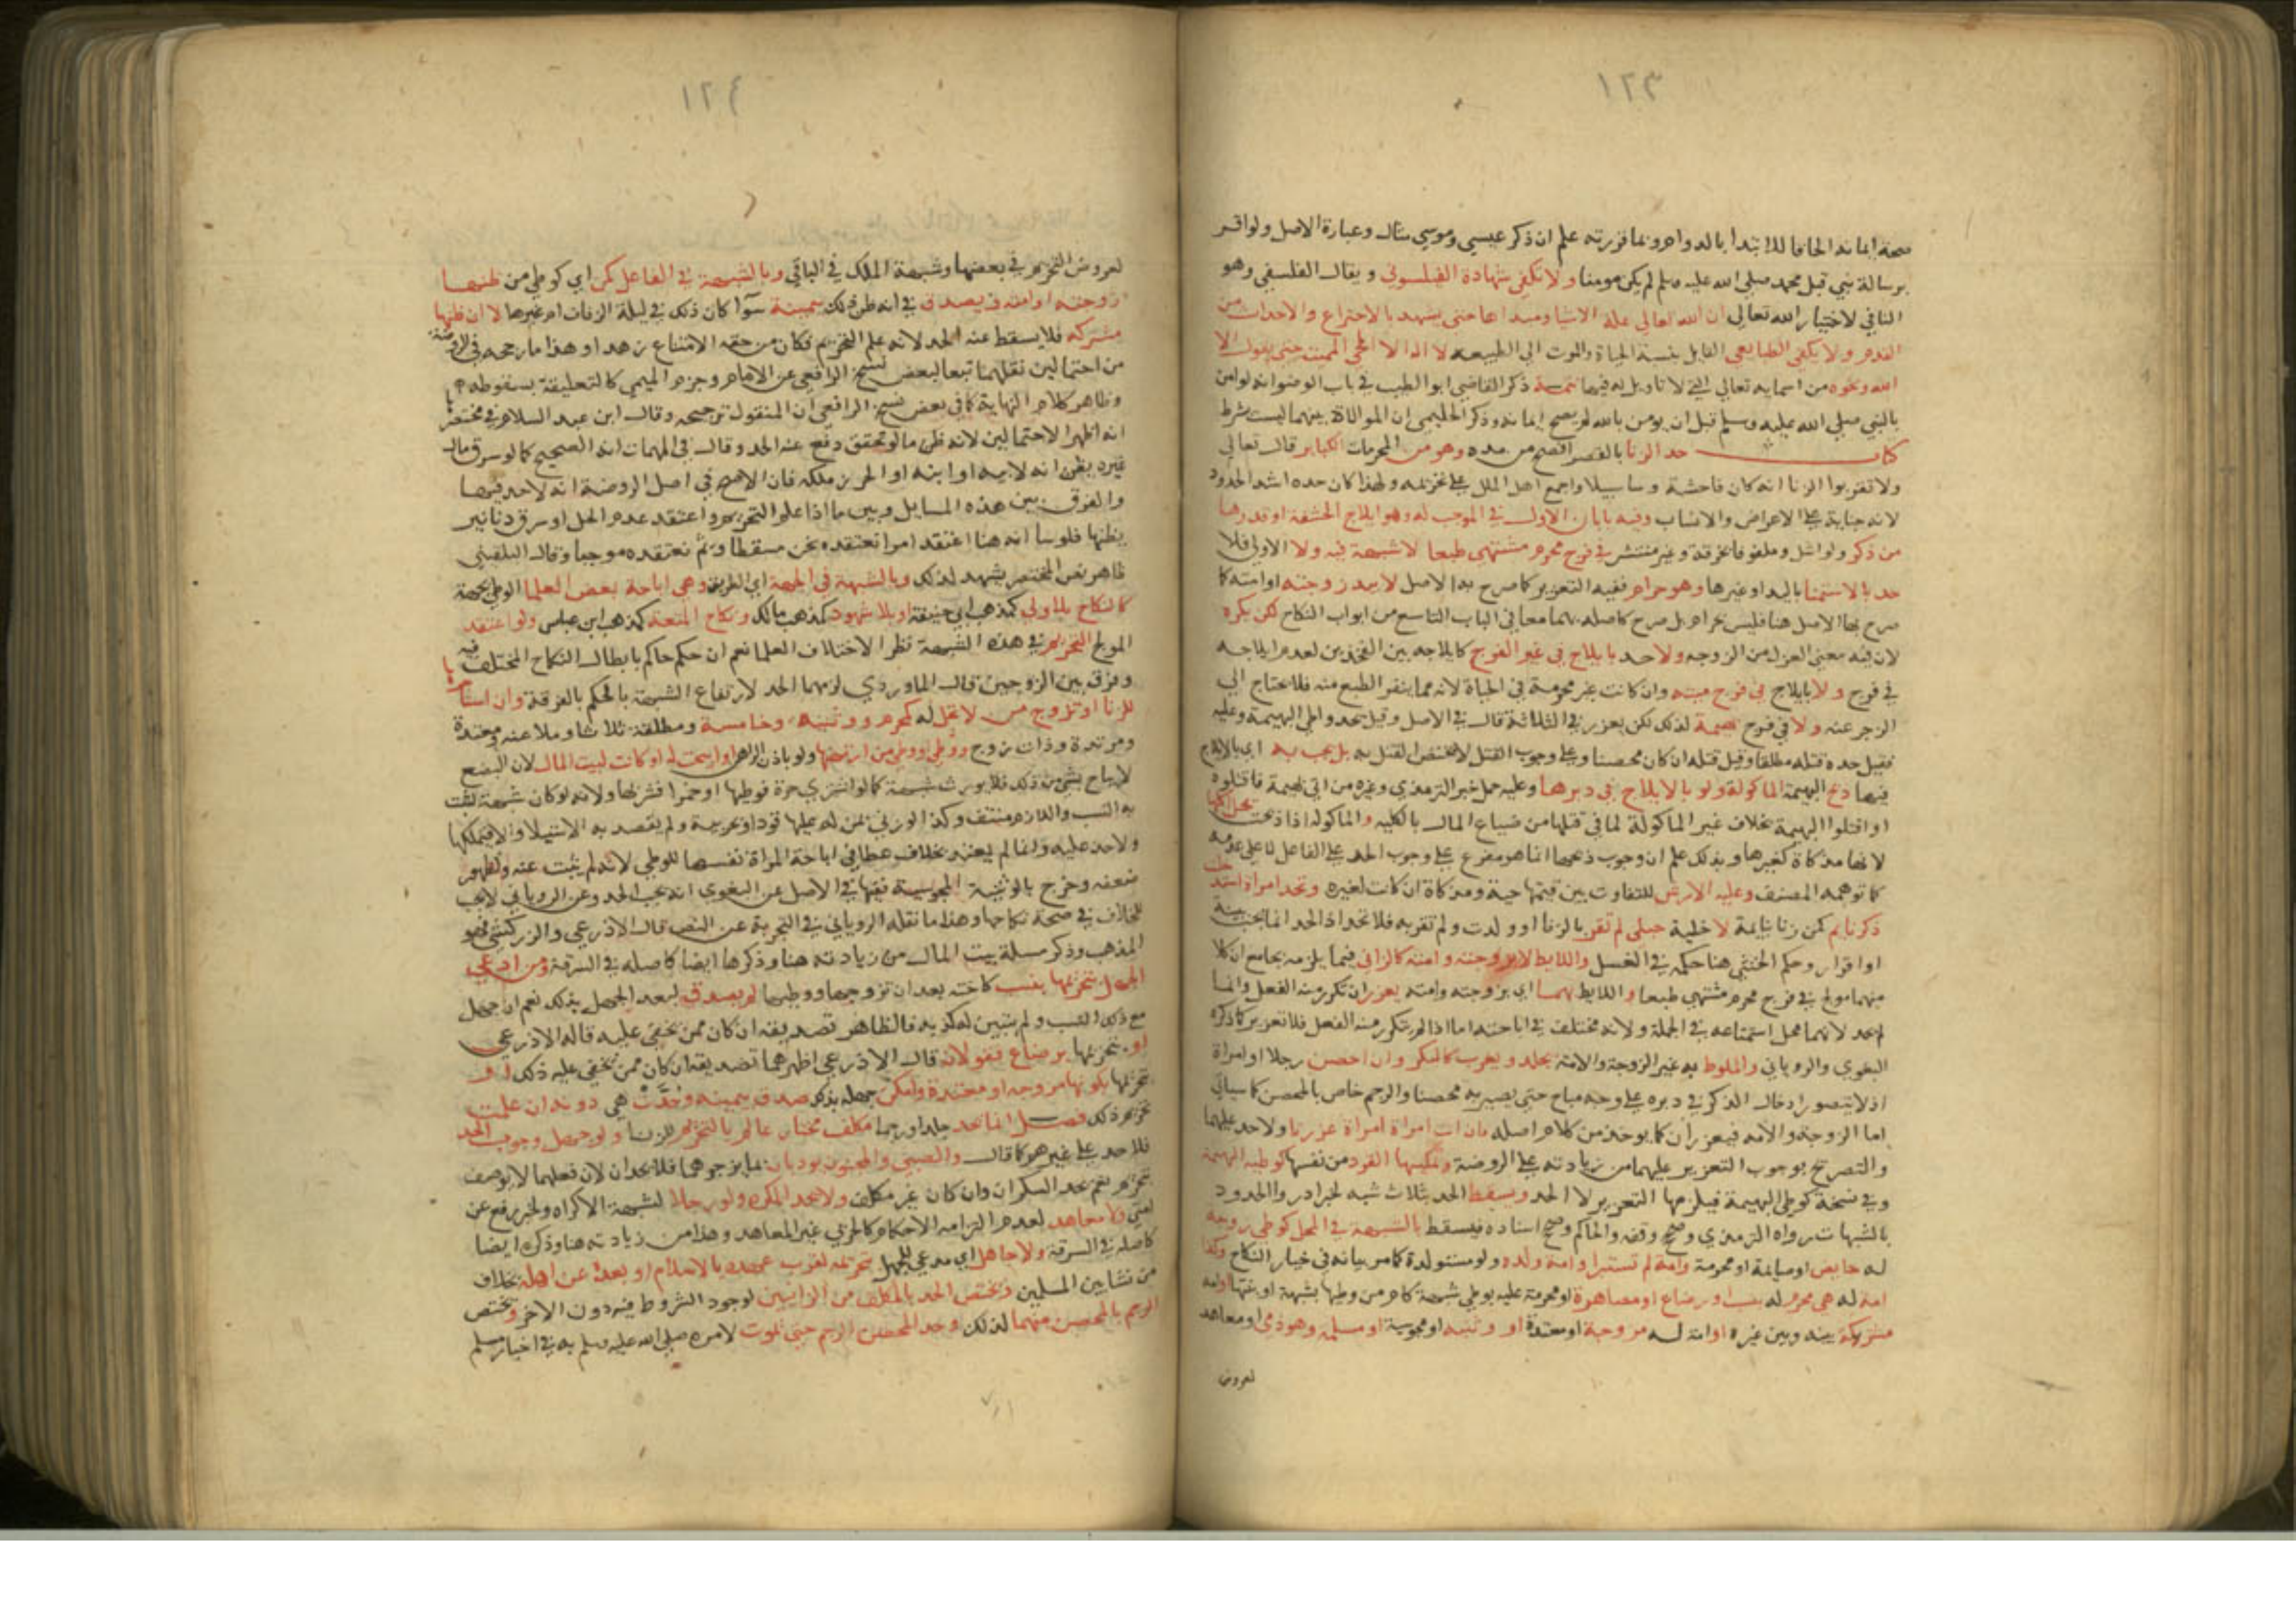 ١٢٣
صحة ايمانه الحاقا للابتدا بالدوام وبما قررته علم ان ذكر عيسي وموسي مثال وعبارة الاصل ولو اقر
برسالة نبي قبل محمد صلي الله عليه وسلم لم يكن مومنا ولا تكفي شهادة الفيلسوفي ويقال الفلسفي وهو
النافي لاختيار الله تعالي ان الله تعالي علة الاشيا ومبداها حتي يشهد بالاختراع والاحداث من
العدم ولا يكفي الطبايعي القايل بنسبة الحياة والموت الي الطبيعة لا اله الا المحي المميت حتي يقول الا
الله ونحوه من اسمايه تعالي التي لا تاويل له فيها تتمة ذكر القاضي ابو الطيب في باب الوضوا انه لو امن
بالنبي صلي الله عليه وسلم قبل ان يومن بالله لم يصح ايمانه وذكر الحليمي ان الموالاة بينهما ليست بشرط
كتاب حد الزنا بالقصر افصح من مده وهو من المحرمات الكباير قال تعالي
ولا تقربوا الزنا انه كان فاحشة وسا سبيلا واجمع اهل الملل علي تحريمه ولهذا كان حده اشد الحدود
لانه جناية علي الاعراض والانساب وفيه بابان الاول في الموجب له وهو ايلاج الحشفة او قدرها
من ذكر ولو اشل وملفوفا بخرقة وغير منتشر في فرج محرم مشتهي طبعا لا شبهة فيه ولا الاولي فلا
حد بالاستمنا باليد او غيرها وهو حرام ففيه التعزير كما صرح به الاصل لا بيد زوجته او امته كما
صرح بها الاصل هنا فليس بحرام بل صرح كاصله بهما معا في الباب التاسع من ابواب النكاح لكن يكره
لان فيه معني العزل من الزوجة ولا حد بايلاج في غير الفرج كايلاجه بين الفخذين لعدم ايلاجه
في فرج ولا بايلاج في فرج ميتة وان كانت غير محرمة في الحياة لانه مما ينفر الطبع منه فلا يحتاج الي
الزجر عنه ولا في فرج بهيمة لذلك لكن يعزر في الثلاثة قال في الاصل وقيل يحد واطي البهيمة وعليه
فقيل حده قتله مطلقا وقيل قتله ان كان محصنا وعلي وجوب القتل لا يختص القتل به بل يجب به اي بالايلاج
فيها ذبح البهيمة الماكولة ولو بالايلاج في دبرها وعليه حمل خبر الترمذي وغيره من اتي بهيمة فاقتلوه
او اقتلوا البهيمة بخلاف غير الماكولة لما في قتلها من ضياع المال بالكلية والماكولة اذا ذبحت يحل اكلها
لانها مذكاة كغيرها وبذلك علم ان وجوب ذبحها انما هو مفرع علي وجوب الحد علي الفاعل لا علي عدمه
كما توهمه المصنف وعليه الارش للتفاوت بين قيمتها حية ومذكاة ان كانت لغيره وتحد امراة استدخلت
ذكر نايم كمن زنا بنايمة لا خلية حبلي لم تقر بالزنا او ولدت ولم تقر به فلا تحد اذ الحد انما يجب ببينة
او اقرار وحكم الخنثي هنا حكمه في الغسل واللايط لا بزوجته وامته كالزاني فيما يلزمه بجامع ان كلا
منهما مولج في فرج محرم مشتهي طبعا واللايط بهما اي بزوجته وامته يعزر ان تكرر منه الفعل وانما
لم يحد لانهما محل استمتاعه في الجملة ولانه مختلف في اباحته اما اذا لم يتكرر منه الفعل فلا تعزير كما ذكره
البغوي والروياني والملوط به غير الزوجة والامة يجلد ويغرب كالبكر وان احصن رجلا او امراة
اذ لا يتصور ادخال الذكر في دبره علي وجه مباح حتي يصير به محصنا والرجم خاص بالمحصن كما سياتي
اما الزوجة والامة فيعزران كما يوخذ من كلام اصله فان اتت امراة امراة عزرتا ولا حد عليهما
والتصريح بوجوب التعزير عليهما من زيادته علي الروضة وتمكينها القرد من نفسها كوطيه البهيمة
وفي نسخة كوطي البهيمة فيلزمها التعزير لا الحد ويسقط الحد بثلاث شبه لخبر ادرواا لحدود
بالشبهات رواه الترمذي وصح وقفه والحاكم وصح اسناده فيسقط بالشبهة في المحل كوطي زوجة
له حايض او صايمة او محرمة وامة لم تستبرا وامة ولده ولو مستولدة كما مر بيانه في خيار النكاح وكذا
امة له هي محرم له بنسب او رضاع او مصاهرة او محرمة عليه بوطي شبهة كام من وطيها بشبهة او بنتها او امة
مشتركة بينه وبين غيره او امة له مزوجة او معتدة او وثنية او مجوسية او مسلمة وهو ذمي او معاهد
لعروض
١٢٤
لعروض التحريم في بعضها وشبهة الملك في الباقي وبالشبهة في الفاعل كمن اي كوطي من ظنها
زوجته او امته فيصدق في انه ظن ذلك بيمينه سوآ كان ذلك في ليلة الزفاف ام غيرها لا ان ظنها
مشتركة فلا يسقط عنه الحد لانه علم التحريم فكان من حقه الامتناع زهدا وهذا ما رجحه في الروضة
من احتمالين نقلهما تبعا لبعض نسخ الرافعي عن الامام وجزم الميمي كالتعليقة بسقوطه
وظاهر كلام النهاية كما في بعض نسخ الرافعي ان المنقول ترجيحه وقال ابن عبد السلام في مختصرها
انه اظهر الاحتمالين لانه ظن ما لو تحقق دفع عنه الحد وقال في المهمات انه الصحيح كما لو سرق مال
غيره يظن انه لابيه او ابنه او الحرز ملكه فان الاصح في اصل الروضة انه لا حد فيها
والفرق بين هذه المسايل وبين ما اذا علم التحريم واعتقد عدم الحل او سرق دنانير
يظنها فلوسا انه هنا اعتقد امرا نعتقده نحن مسقطا وثم نعتقده موجبا وقال البلقيني
ظاهر نص المختصر يشهد لذلك وبالشبهة في الجهة اي الطريق وهي اباحة بعض العلما الوطي بجهة
كالنكاح بلا ولي كمذهب ابي حنيفة او بلا شهود كمذهب مالك ونكاح المتعة كمذهب ابن عباس ولو اعتقد
المولج التحريم في هذه الشبهة نظرا لاختلاف العلما نعم ان حكم حاكم بابطال النكاح المختلف فيه
وفرق بين الزوجين قال الماوردي لزمهما الحد لارتفاع الشبهة بالحكم بالفرقة وان استاجرها
للزنا او تزوج من لا تحل له كمحرم ووثنية وخامسة ومطلقة ثلاثا وملاعنة ومعتدة
ومرتدة وذات زوج ووطي من ارتهنها ولو باذن الراهن او ابيحت له او كانت لبيت المال لان البضع
لا يباح بشي من ذلك فلا يورث شبهة كما لو اشتري حرة فوطيها او خمرا فشربها ولانه لو كان شبهة لثبت
به النسب واللازم منتف وكذا لو زني بمن له عليها قود او بحربية ولم يقصد به الاستيلا والا فيملكها
ولا حد عليه وانما لم يعتبر بخلاف عطا في اباحة المراة نفسها للوطي لانه لم يثبت عنه ولظهور
ضعفه وخرج بالوثنية المجوسية ففيها في الاصل عن البغوي انه يجب الحد وعن الروياني لا يجب
للخلاف في صحة نكاحها وهذا ما نقله الروياني في التجربة عن النص قال الاذرعي والزركشي فهو
المذهب وذكر مسلة بيت المال من زيادته هنا وذكرها ايضا كاصله في السرقة ومن ادعي
الجهل بتحريمها بنسب كاخته بعد ان تزوجها ووطيها لم يصدق لبعد الجهل بذلك نعم ان جهل
مع ذلك النسب ولم يتبين لنا كذبه فالظاهر تصديقه ان كان ممن يخفي عليه قاله الاذرعي
او بتحريمها برضاع فقولان قال الاذرعي اظهرهما تصديقه ان كان ممن يخفي عليه ذلك او
تحريمها بكونها مزوجة او معتدة وامكن جهله بذلك صدق بيمينه وحُدَّتْ هي دونه ان علمت
تحريم ذلك فصل انما يحد جلدا ورجما مكلف مختار عالم بالتحريم للزنا ولو جهل وجوب الحد
فلا حد علي غيرهم كما قال والصبي والمجنون يودبان بما يزجرهما فلا يحدان لان فعلهما لا يوصف
بتحريم نعم يحد السكران وان كان غير مكلف ولا يحد المكره ولو رجلا لشبهة الاكراه ولخبر رفع عن
امتي ولا معاهد لعدم التزامه الاحكام كالحربي غير المعاهد وهذا من زيادته هنا وذكره ايضا
كاصله في السرقة ولا جاهل اي مدعي للجهل تحريمه لقرب عهده بالاسلام او بعده عن اهله بخلاف
من نشا بين المسلمين ويختص الحد بالمكلف من الزانيين لوجود الشروط فيه دون الاخر ويختص
الرجم بالمحصن منهما لذلك وحد المحصن الرجم حتي يموت لامره صلي الله عليه وسلم به في اخبار مسلم